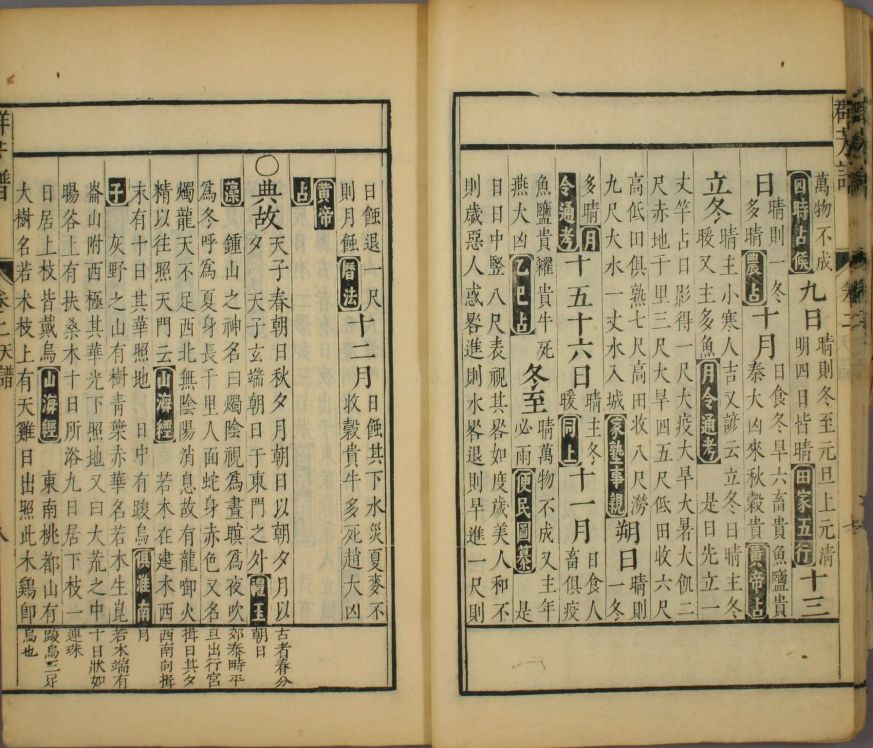 群芳譜
萬物不成四時占候九日晴則冬至元旦上元清明四日皆晴田家五行十三
日晴則一冬多晴農占十月日食冬旱六畜貴魚鹽貴秦大凶來秋穀貴黃帝占
立冬晴主小寒人吉又諺云立冬日晴主冬暖又主多魚月令通考是日先立一
丈竿占日影得一尺大疫大旱大暑大飢二
尺赤地千里三尺大旱四五尺低田收六尺
高低田俱熟七尺高田收八尺澇九尺大水一丈水入城家塾事親朔日晴則一冬
多晴月令通考十五十六日晴主冬暖同上十一月日食人畜俱疫
魚鹽貴糴貴牛死燕大凶乙巳占冬至晴萬物不成又主年必雨便民圖纂是
日日中豎八尺表視其晷如度歲美人和不
則歲惡人惑晷進則水晷退則旱進一尺則
日蝕退一尺則月蝕曆法十二月日蝕其下水災夏麥不收穀貴牛多死趙大凶
黃帝占
○典故天子春朝日秋夕月朝日以朝夕月以夕 天子玄端朝日于東門之外禮玉
藻 鍾山之神名曰燭陰視為晝瞑為夜吹
為冬呼爲夏身長千里人面蛇身赤色又名
燭龍天不足西北無陰陽消息故有龍啣火
精以往照天門云山海經 若木在建木西
末有十日其華照地 日中有踆烏俱淮南
子 灰野之山有樹青葉赤華名若木生崑
崙山附西極其華光下照地又曰大荒之中
暘谷上有扶桑木十日所浴九日居下枝一
日居上枝皆戴烏山海經 東南桃都山有
大樹名若木枝上有天雞日出照此木鷄卽
古者春分
朝日
郊泰畤平
旦出行宮
揖日其夕
西南向揖
月
若木端有
十日狀如
連珠
踆烏三足
烏也
群芳譜
卷二 天譜
八